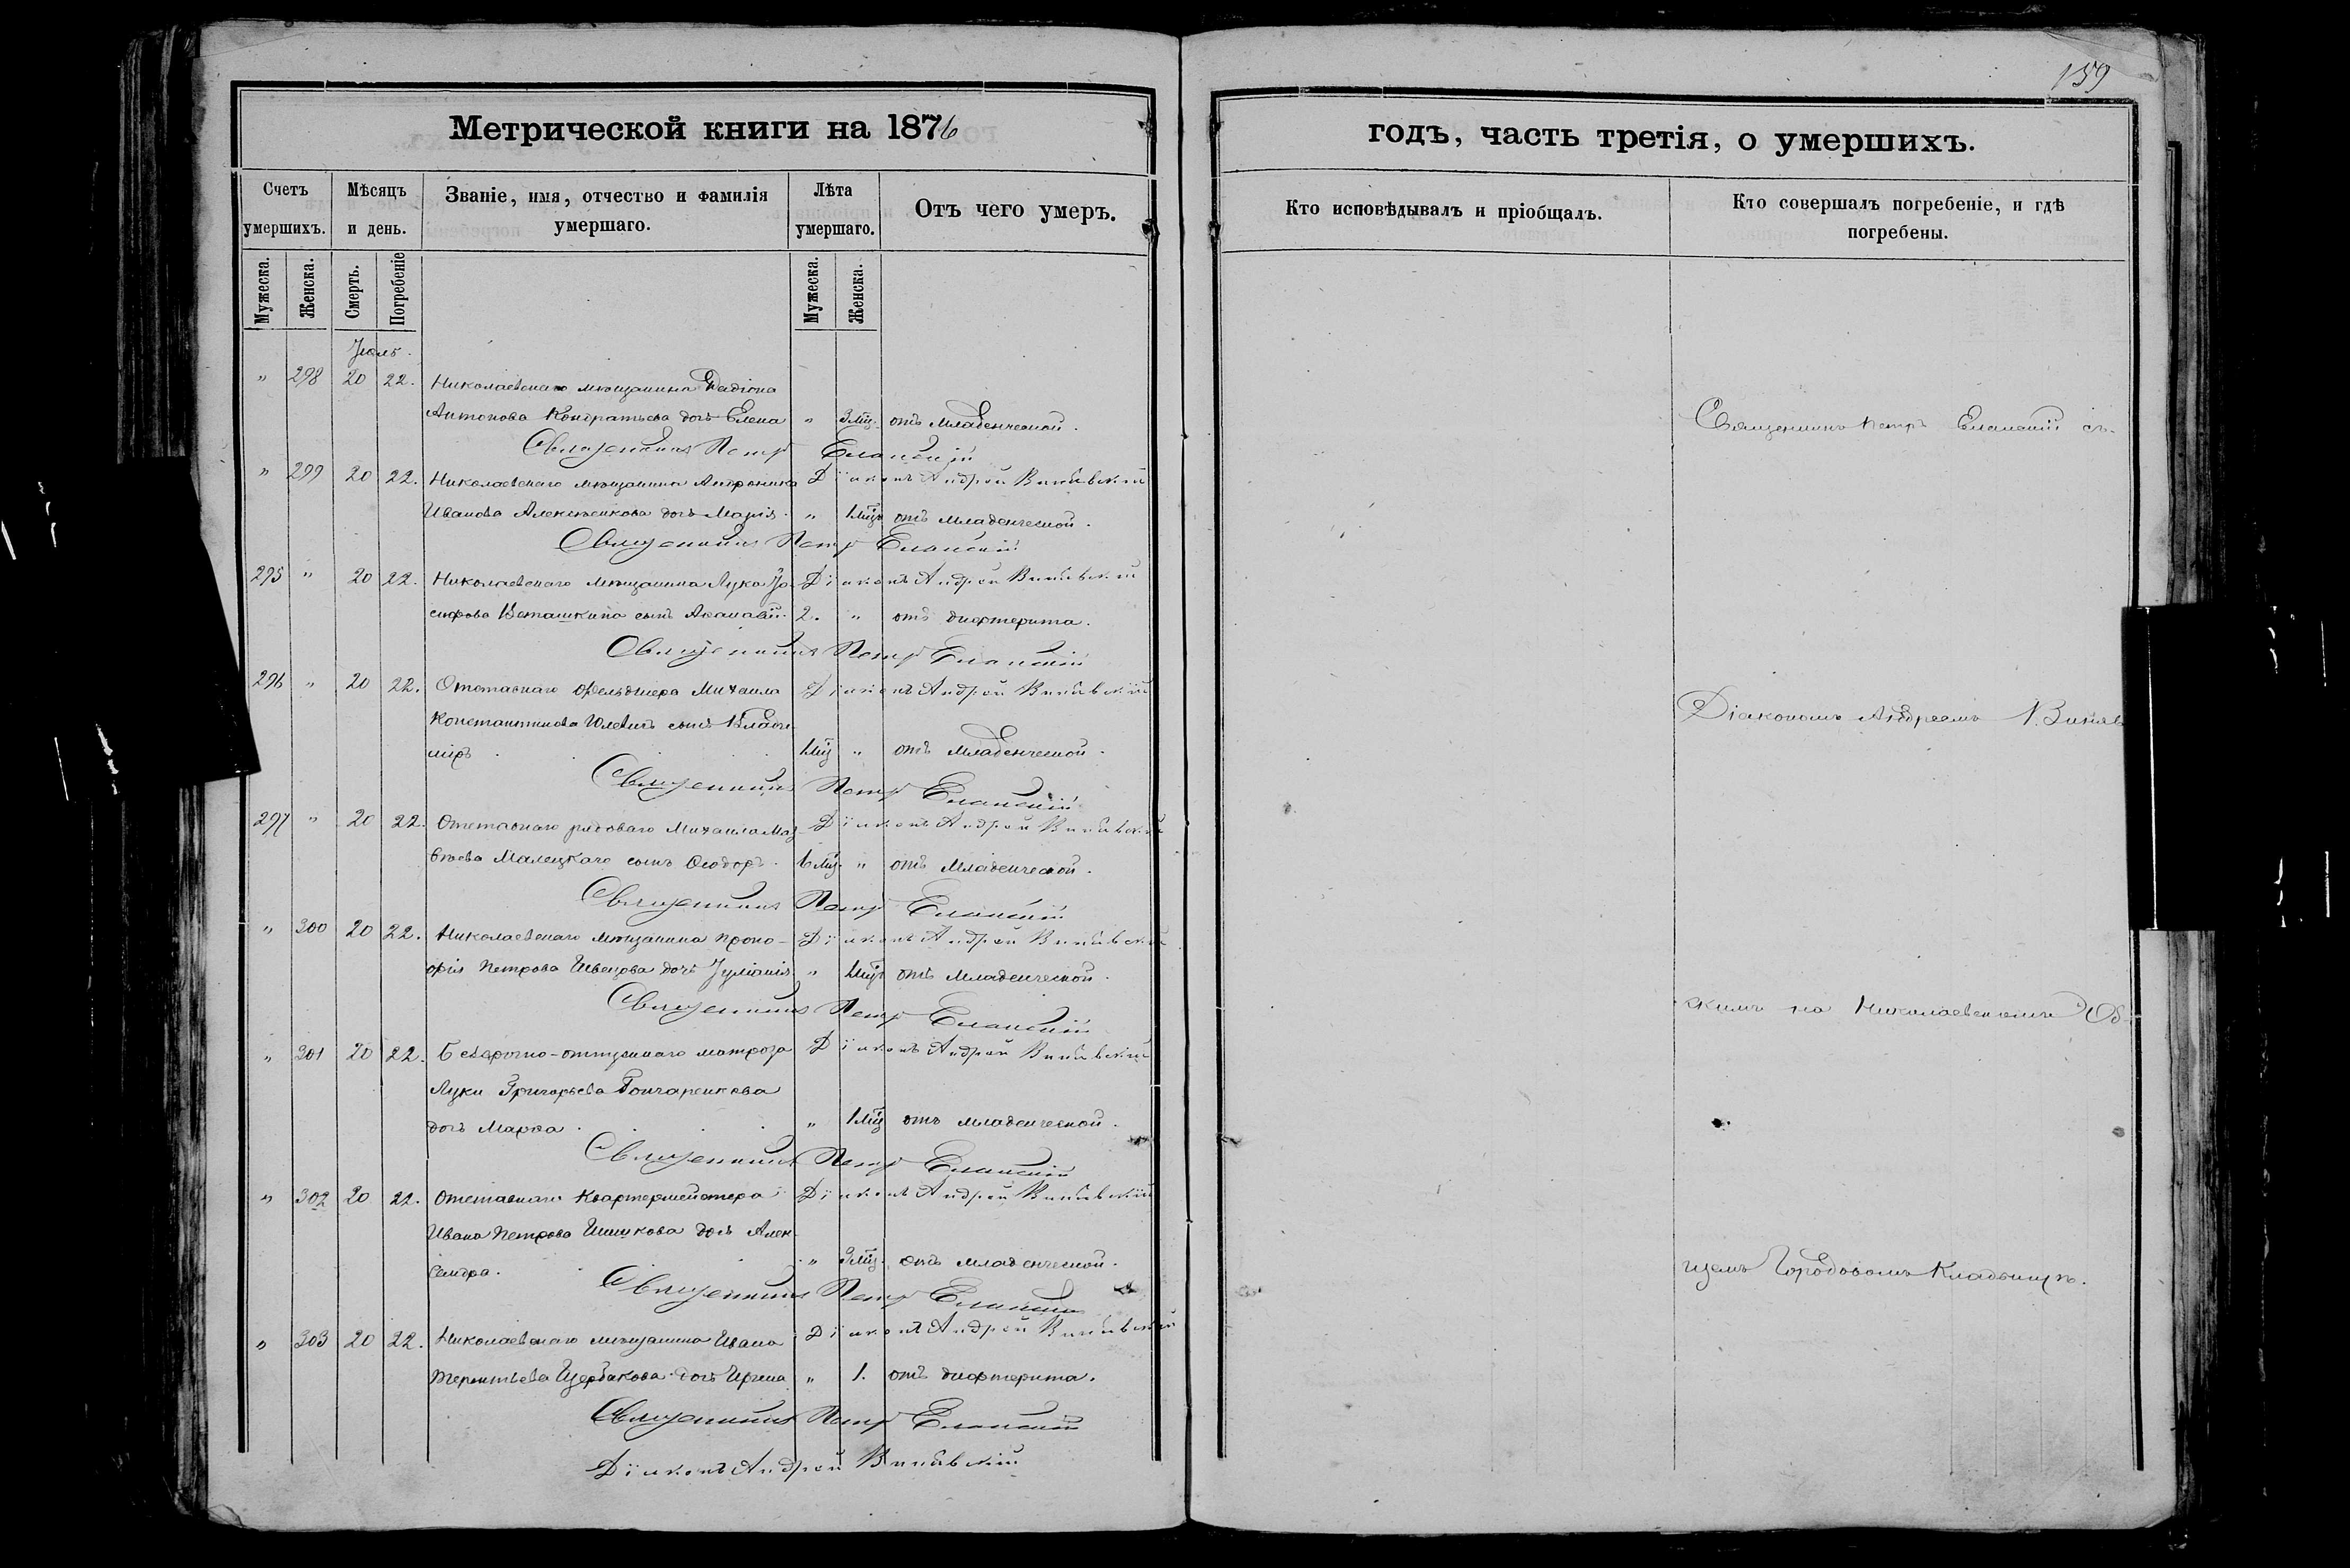 159
Метрической книги на 1876
годъ, часть третія, о умершихъ.
Счетъ умершихъ.
Мѣсяцъ и день.
Званіе, имя, отчество и фамилія умершаго.
Лѣта умершаго.
Отъ чего умеръ.
Кто исповѣдывалъ и пріобщалъ.
Кто совершалъ погребеніе, и гдѣ погребены.
Мужеска. Женска. Смерть. Погребеніе Мужеска. Женска.
Іюль.
" 298 20 22. Николаевскаго мѣщанина Радіона
Антонова Кондратьева дочь Елена " 3 мѣц. отъ младенческой.
Священникъ Петръ Еланскій
" 299 20 22. Николаевскаго мѣщанина Андроника Діаконъ Андрей
Иванова Алексѣенкова дочь Марія. " 1 мѣц отъ младенческой.
Священникъ Петръ Еланскій
295 " 20 22. Николаевскаго мѣщанина Лука Іо- Діаконъ Андрей
сифова сынъ Акакій 2. " отъ дифтерита.
Священникъ Петръ Еланскій
296 " 20 22. Отставнаго фельдшера Михаила Діаконъ Андрей
Константинова сынъ Влади-
міръ. 1 мѣц " отъ младенческой.
Священникъ Петръ Еланскій
297 " 20 22. Отставнаго рядоваго Михаила Мат- Діаконъ Андрей
вѣева Малецкаго сынъ Ѳеодоръ. 6 мѣц. " отъ младенческой.
Священникъ Петръ Еланскій
" 300 20 22. Николаевскаго мѣщанина Проко- Діаконъ Андрей
фія Петрова Швецова дочь Іуліанія " 1 мѣц отъ младенческой.
Священникъ Петръ Еланскій
" 301 20 22. Безсрочно-отпускнаго матроза Діаконъ Андрей
Луки Григорьева Гончаренкова
дочь Марѳа. " 1 мѣц отъ младенческой.
Священникъ Петръ Еланскій
" 302 20 22. Отставнаго квартермейстера Діаконъ Андрей
Ивана Петрова Шишкова дочь Алек-
сандра. " 3 мѣц. отъ младенческой.
Священникъ Петръ Еланскій
" 303 20 22. Николаевскаго мѣщанина Ивана Діаконъ Андрей
Терентьева Щербакова дочь Ирина " 1. отъ дифтерита.
Священникъ Петръ Еланскій
Діаконъ Андрей
Священникъ Петръ Еланскій съ-
Діакономъ Андреемъ
скимъ на Николаевскомъ Об-
щемъ Городовомъ Кладбищѣ.